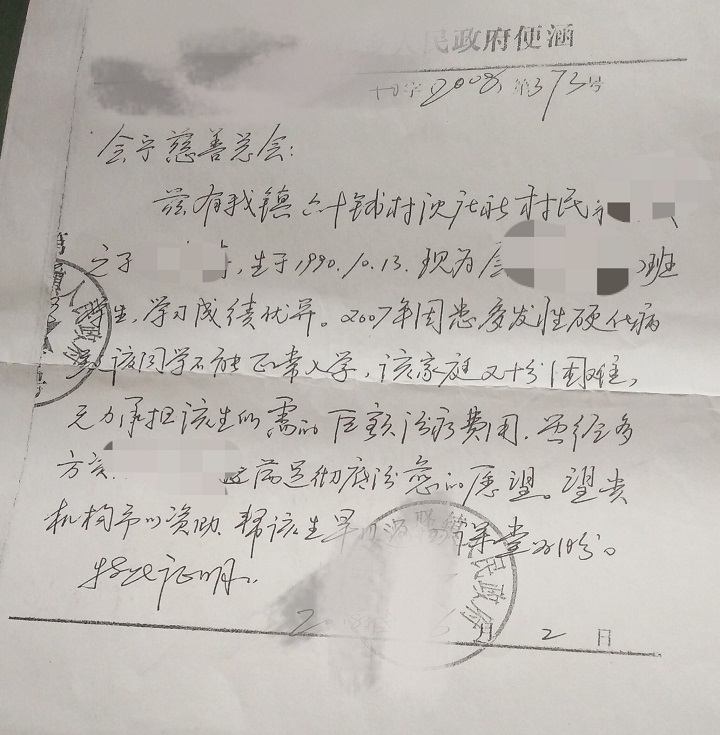 人民政府便涵
字2008第373号
会宁慈善总会:
兹有我镇六十铺村 社村民
之子 ,生于1990.10.13.现为 班
学生,学习成绩优异。2007年因患多发性硬化病
该同学不能正常入学,该家庭又十分困难,
无力承担该生所需的巨额治疗费用.曾经多
方 满足彻底治愈的愿望。望贵
机构予以资助,帮该生早 课堂
特此证明.
2008 6月2日
人民政府
人民政府